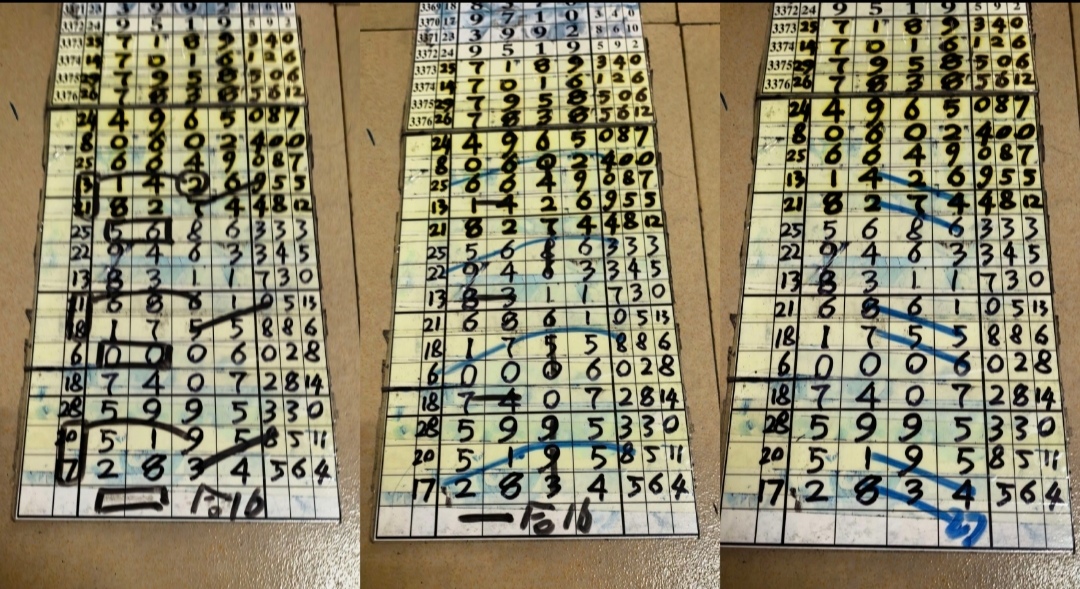 3371 23 3 9 9 2 8 6 10
3372 24 9 5 1 9 5 9 2
3373 25 7 1 8 9 3 4 0
3374 14 7 0 1 6 1 2 6
3375 29 7 9 5 8 5 0 6
3376 26 7 8 3 8 5 6 12
24 4 9 6 5 0 8 7
8 0 6 0 2 4 0 0
25 6 6 4 9 0 8 7
13 1 4 2 6 9 5 5
21 8 2 7 4 4 8 12
25 5 6 8 6 3 3 3
22 9 4 6 3 3 4 5
13 8 3 1 1 7 3 0
21 6 8 6 1 0 5 13
18 1 7 5 5 8 8 6
6 0 0 0 6 0 2 8
18 7 4 0 7 2 8 14
28 5 9 9 5 3 3 0
20 5 1 9 5 8 5 11
17 2 8 3 4 5 6 4
16
3369 18
3370 12 9 7 1 0 3 4 0
3371 23 3 9 9 2 8 6 10
3372 24 9 5 1 9 5 9 2
3373 25 7 1 8 9 3 4 0
3374 14 7 0 1 6 1 2 6
3375 29 7 9 5 8 5 0 6
3376 26 7 8 3 8 5 6 12
24 4 9 6 5 0 8 7
8 0 6 0 2 4 0 0
25 6 6 4 9 0 8 7
13 1 4 2 6 9 5 5
21 8 2 7 4 4 8 12
25 5 6 8 6 3 3 3
22 9 4 6 3 3 4 5
13 8 3 1 1 7 3 0
21 6 8 6 1 0 5 13
18 1 7 5 5 8 8 6
6 0 0 0 6 0 2 8
18 7 4 0 7 2 8 14
28 5 9 9 5 3 3 0
20 5 1 9 5 8 5 11
17 2 8 3 4 5 6 4
16
3372 24 9 5 1 9 5 9 2
3373 25 7 1 8 9 3 4 0
3374 14 7 0 1 6 1 2 6
3375 29 7 9 5 8 5 0 6
3376 26 7 8 3 8 5 6 12
24 4 9 6 5 0 8 7
8 0 6 0 2 4 0 0
25 6 6 4 9 0 8 7
13 1 4 2 6 9 5 5
21 8 2 7 4 4 8 12
25 5 6 8 6 3 3 3
22 9 4 6 3 3 4 5
13 8 3 1 1 7 3 0
21 6 8 6 1 0 5 13
18 1 7 5 5 8 8 6
6 0 0 0 6 0 2 8
18 7 4 0 7 2 8 14
28 5 9 9 5 3 3 0
20 5 1 9 5 8 5 11
17 2 8 3 4 5 6 4
27